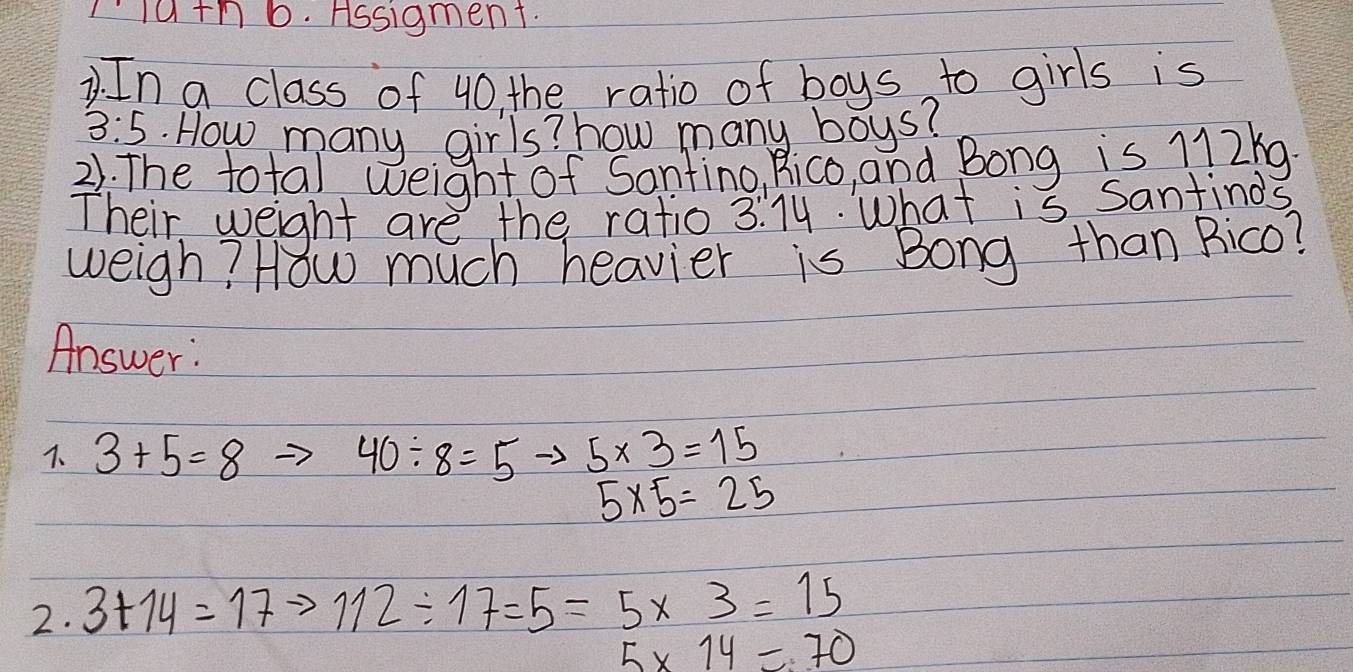 Math 6. Assigment.
1). In a class of 40, the ratio of boys to girls is
3:5. How many girls? how many boys?
2). The total weight of Santino, Rico, and Bong is 112kg.
Their weight are the ratio 3:14. What is Santino's
weigh? How much heavier is Bong than Rico?
Answer:
1. 3+5=8 → 40÷8=5 → 5×3=15
5×5=25
2. 3+14=17→112÷17=5= 5× 3=15
5× 14=70